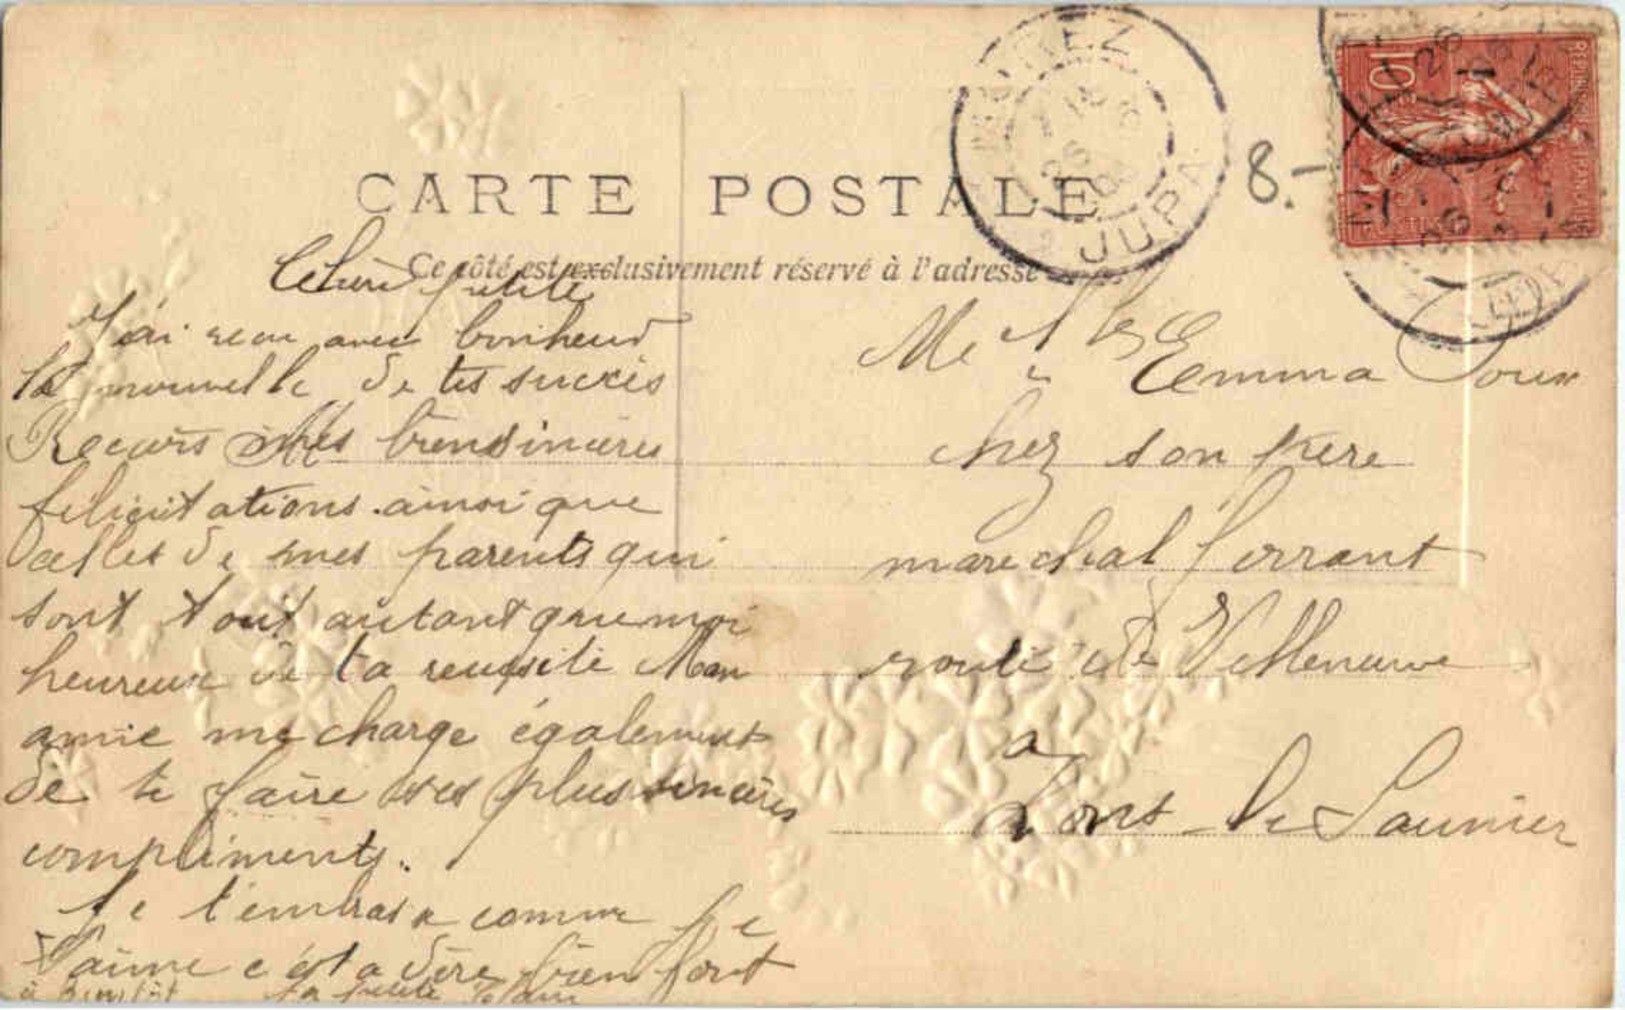 CARTE POSTALE
Ce côté est exclusivement réservé à l'adresse
MOREZ
JURA
10
8.-
Chère petite
J'ai recu avec bonheur
la nouvelle de tes succès
Recois mes bien sincères
félicitations ainsi que
celles de mes parents qui
sont tout autant que moi
heureux de ta reussite Mon
amie me charge également
de te faire ses plus sincères
compliments.
Je t'embrasse comme je
t'aime c'est a dire bien fort
à Bientôt ta petite
Melle Emma
chez son père
marechal ferrant
route de Villeneuve
a
Lons-le-Saunier